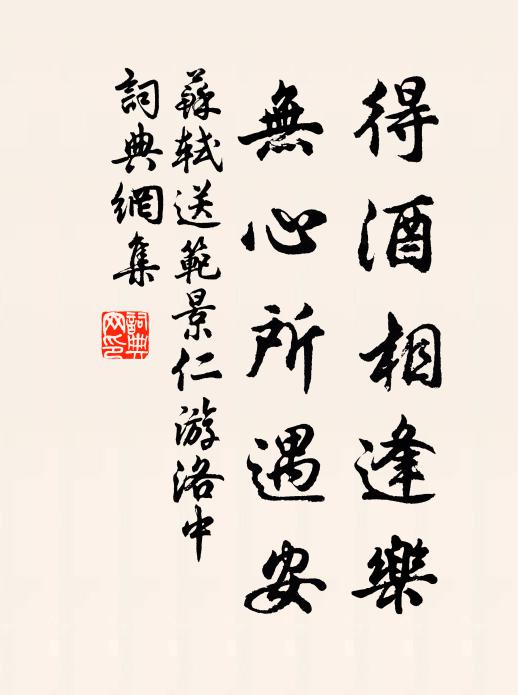 得酒相逢樂
無心所遇安
蘇軾送範景仁游洛中
詞典網集
詞典網印